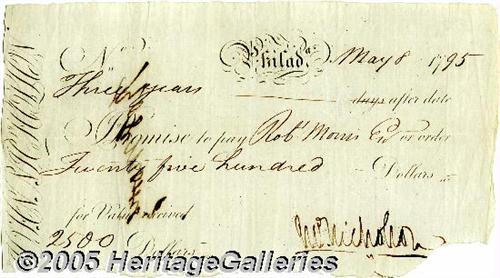 No. Philada. May 8 1795
Three years days after date
I Promise to pay Robt. Morris Esqr or order
Twenty five hundred Dollars
for Value received
2500 Dollars Jno Nicholson
©2005 HeritageGalleries